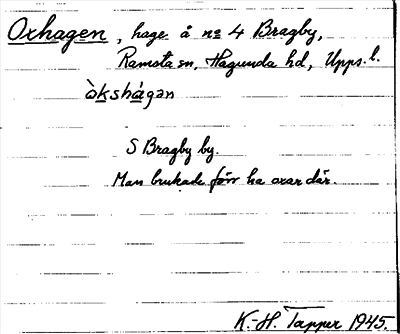 Oxhagen, hage å nº 4 Bragby,
Ramsta sn, Hagunda hd, Upps. l.
òkshágən
S Bragby by.
Man brukade förr ha oxar där.
K.-H. Tapper 1945.